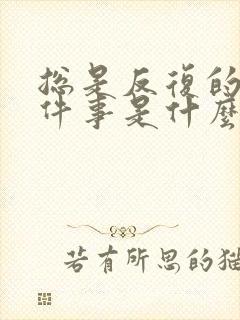 總是反復的
件事是什麼
若有所思的猫